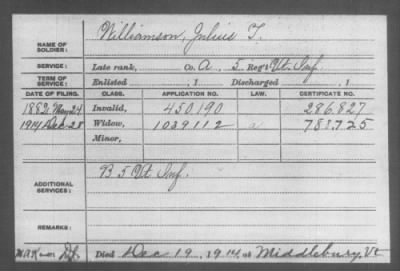 NAME OF SOLDIER: Williamson, Julius T.
SERVICE: Late rank, Co. A, 5 Reg't Vt. Inf.
TERM OF SERVICE: Enlisted , 1 Discharged , 1
DATE OF FILING. CLASS. APPLICATION NO. LAW. CERTIFICATE NO.
1882 May 24 Invalid, 450.190 286.827
1914 Dec 28 Widow, 1039112 781.725
Minor,
ADDITIONAL SERVICES: B 5 Vt. Inf.
REMARKS:
Died Dec 19, 1914, at Middlebury, Vt